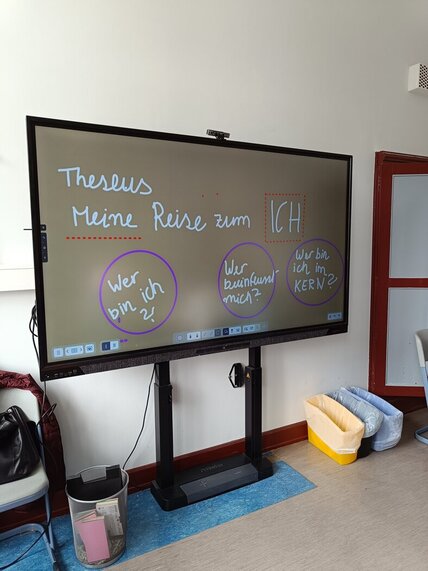 Theseus
Meine Reise zum ICH
Wer
bin ich
?!
Wer
beeinflusst
mich?
Wer bin
ich im
KERN?